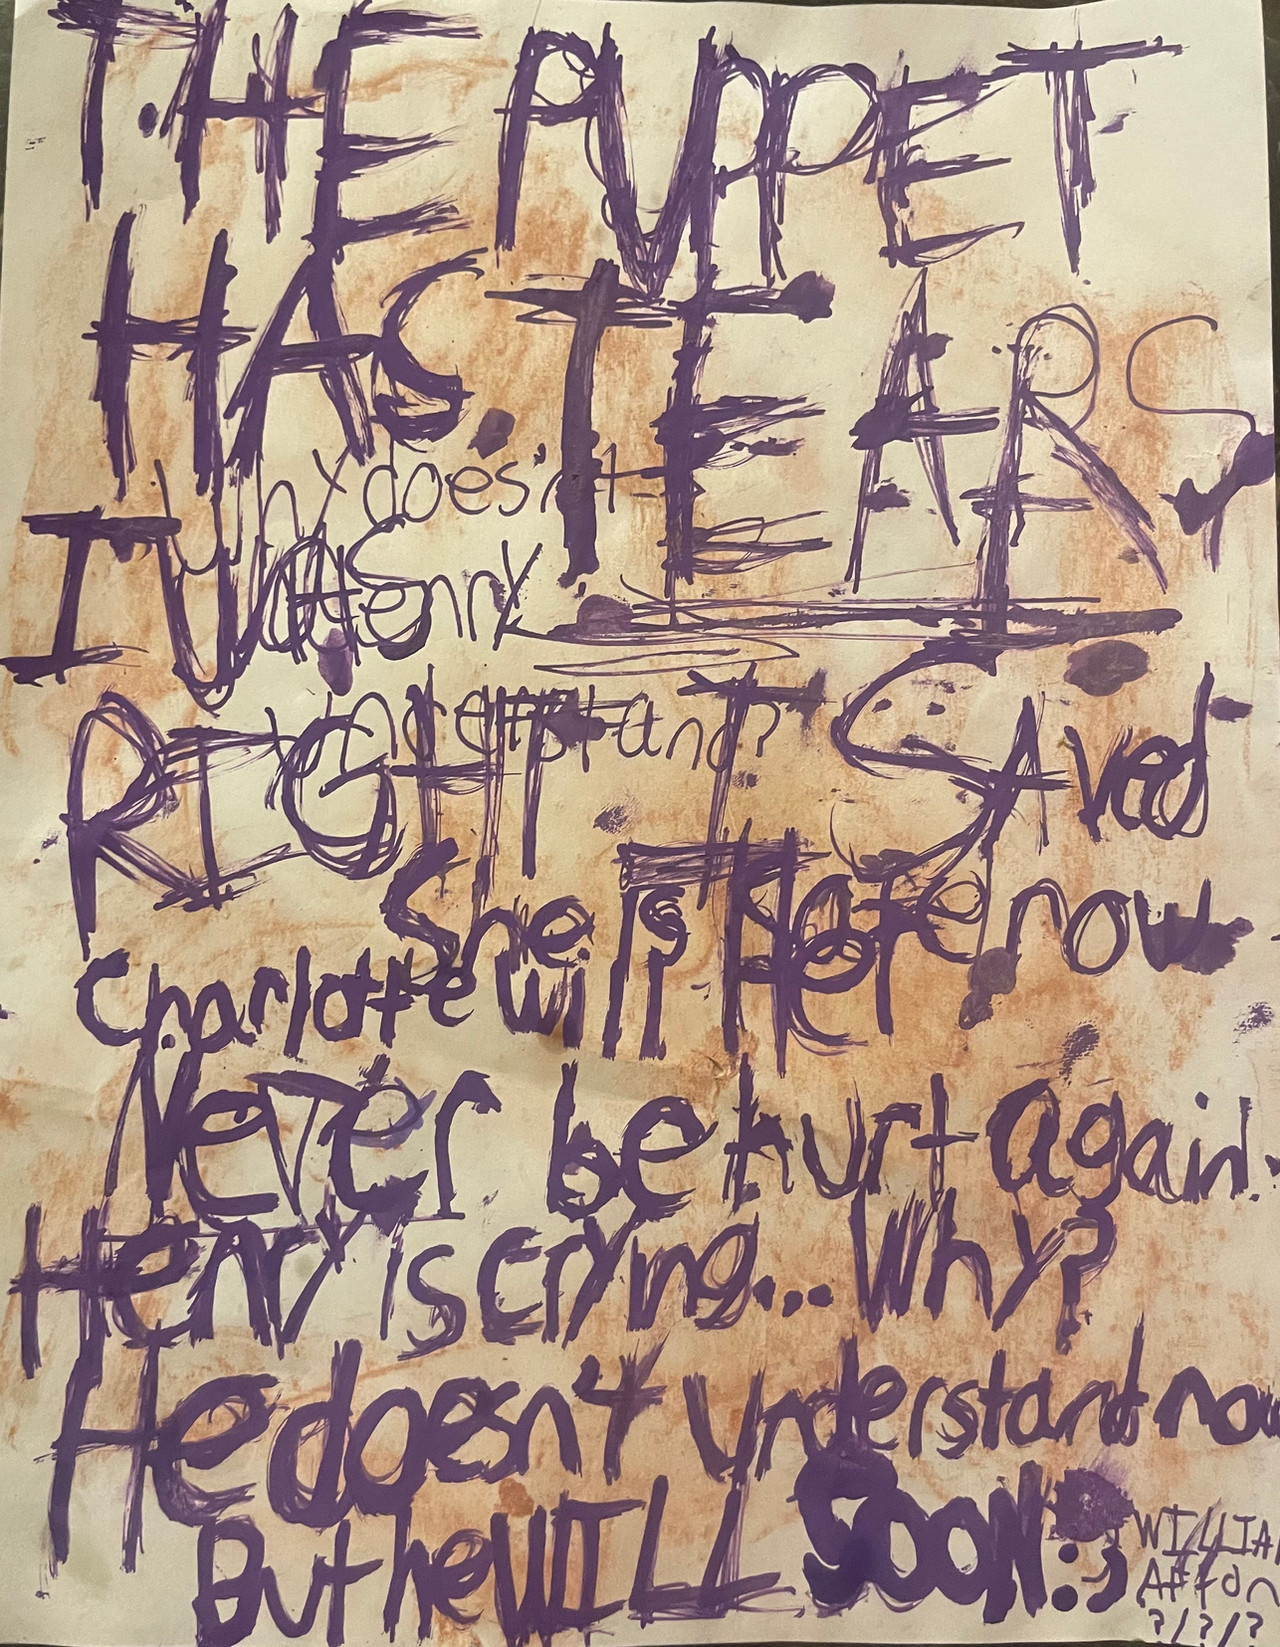 THE PUPPET
HAS TEARS
Why doesn't
I WAS
Henry
understand?
RIGHT I Saved
Her
She is safe now
Charlotte will
Never be hurt again.
Henry is crying... Why?
He doesn't understand now
But he WILL SOON :)
WILLIA
Afton
?/?/?